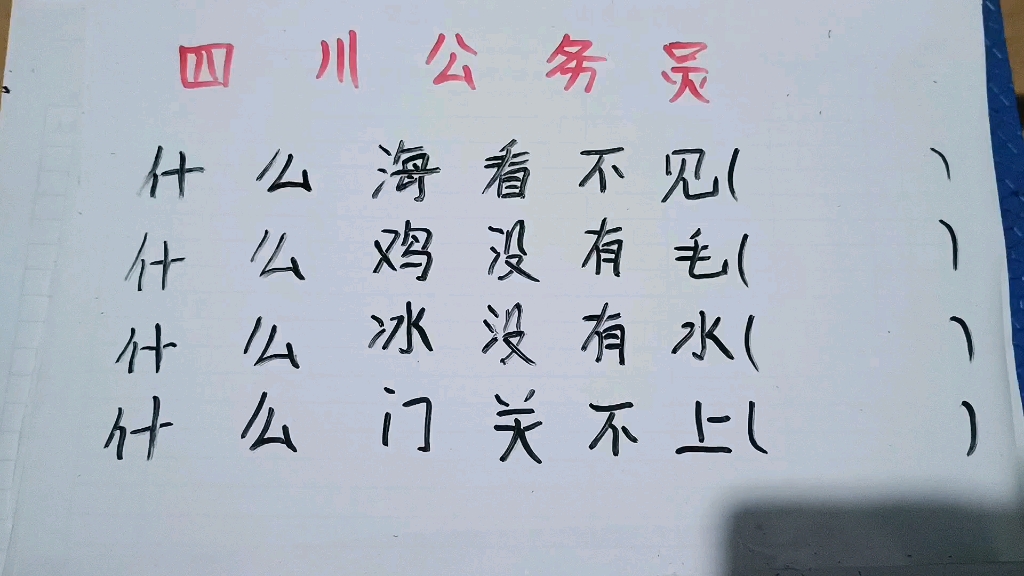 四川公务员
什么海看不见(  )
什么鸡没有毛(  )
什么冰没有水(  )
什么门关不上(  )